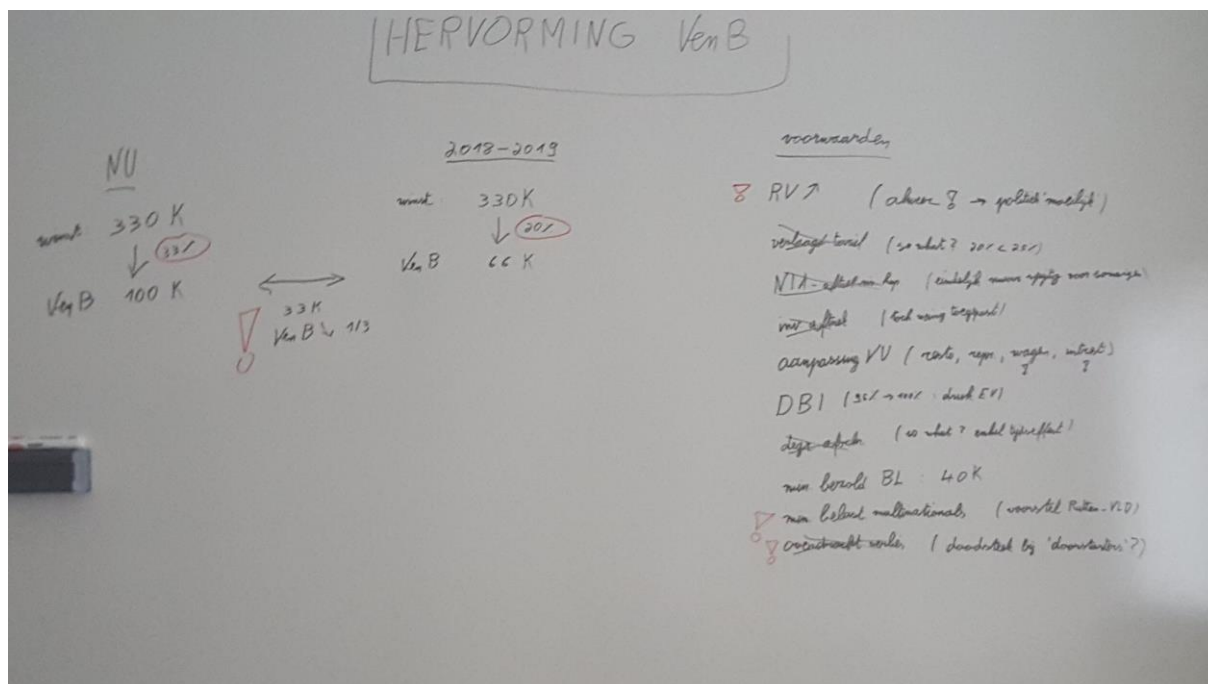 HERVORMING VenB
NU
winst 330 K
33%
VenB 100 K
33K
VenB ↓ 1/3
2018-2019
winst 330K
20%
VenB 66 K
voorwaarden
RV ↗ ( → politiek moeilijk)
verlaagd tarief (so what? 20% < 25%)
NIA-aftrek (eindelijk voor sommige)
inv aftrek (toch weinig toegepast)
aanpassing VU (resto, repr, wagen, intrest)
DBI (95% → 100% EV)
degr afschr (so what? enkel tijdseffect)
min bezold BL 40K
min belast multinationals (voorstel Rutten-VLD)
overdracht verlies (doodsteek bij 'doorstarters'?)